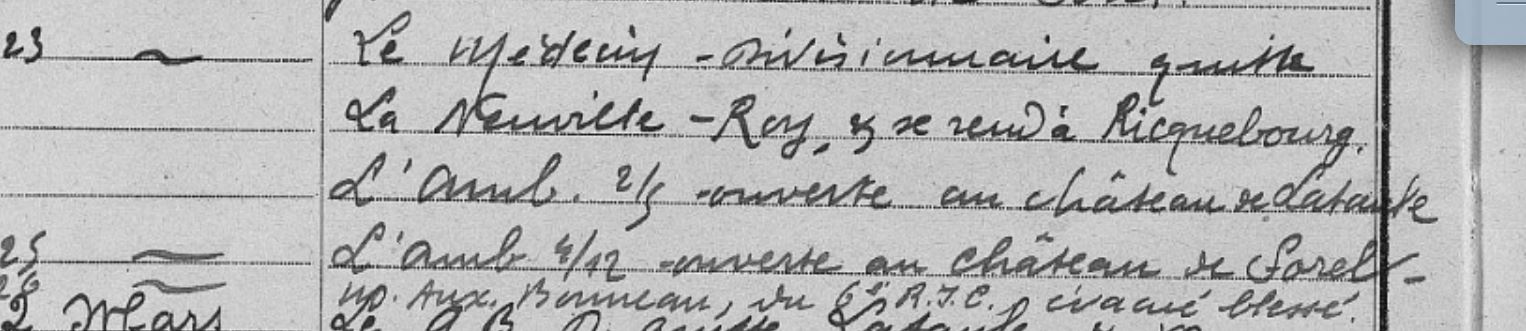 23 ~ Le Médecin-Divisionnaire quitte
La Neuville-Roy, & se rend à Ricquebourg.
L'Amb. 2/5 ouverte au château de Lataule
25 ~ L'Amb 4/12 ouverte au château de Sorel-
26 ~ Mp. Aux. Bonneau, du 6e R.I.C. évacué blessé.
2 Mars Le quitte Lataule